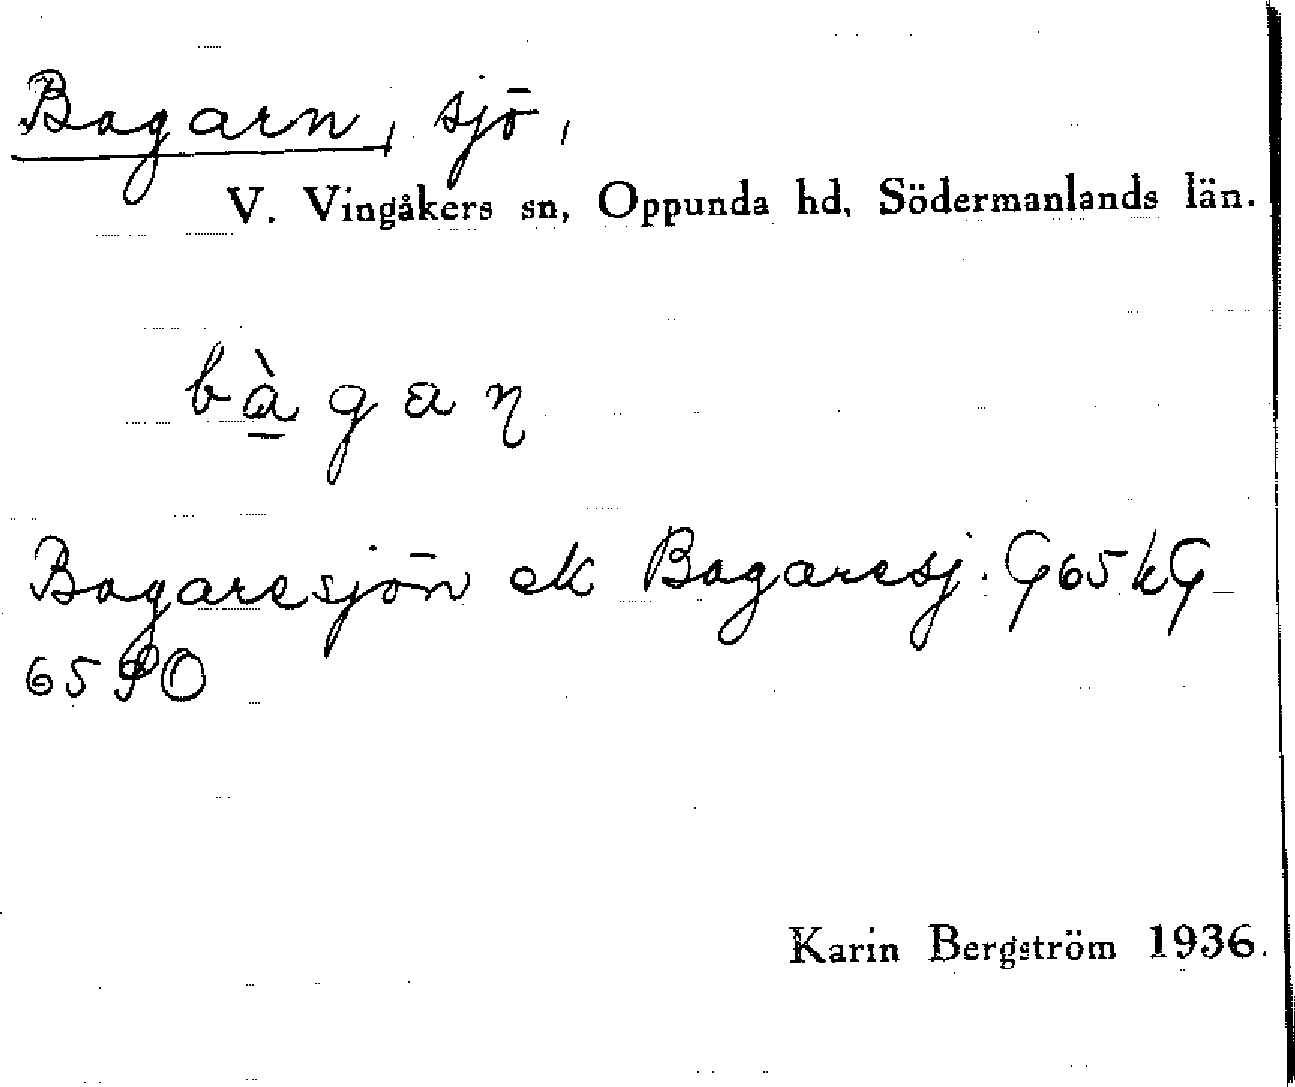 Bagarn, sjö,
V. Vingåkers sn, Oppunda hd, Södermanlands län.
bàgaɳ
Bagaresjön ek Bagaresj. G65 kG
65 SO
Karin Bergström 1936.